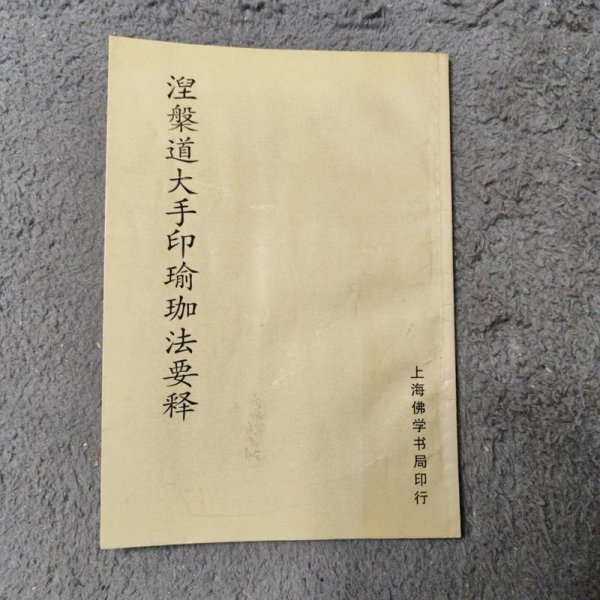 涅槃道大手印瑜珈法要释
上海佛学书局印行